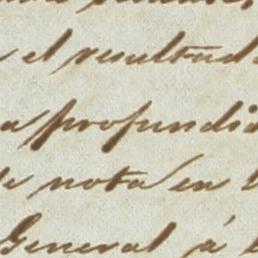 el resultad
profundi
nota en
General á